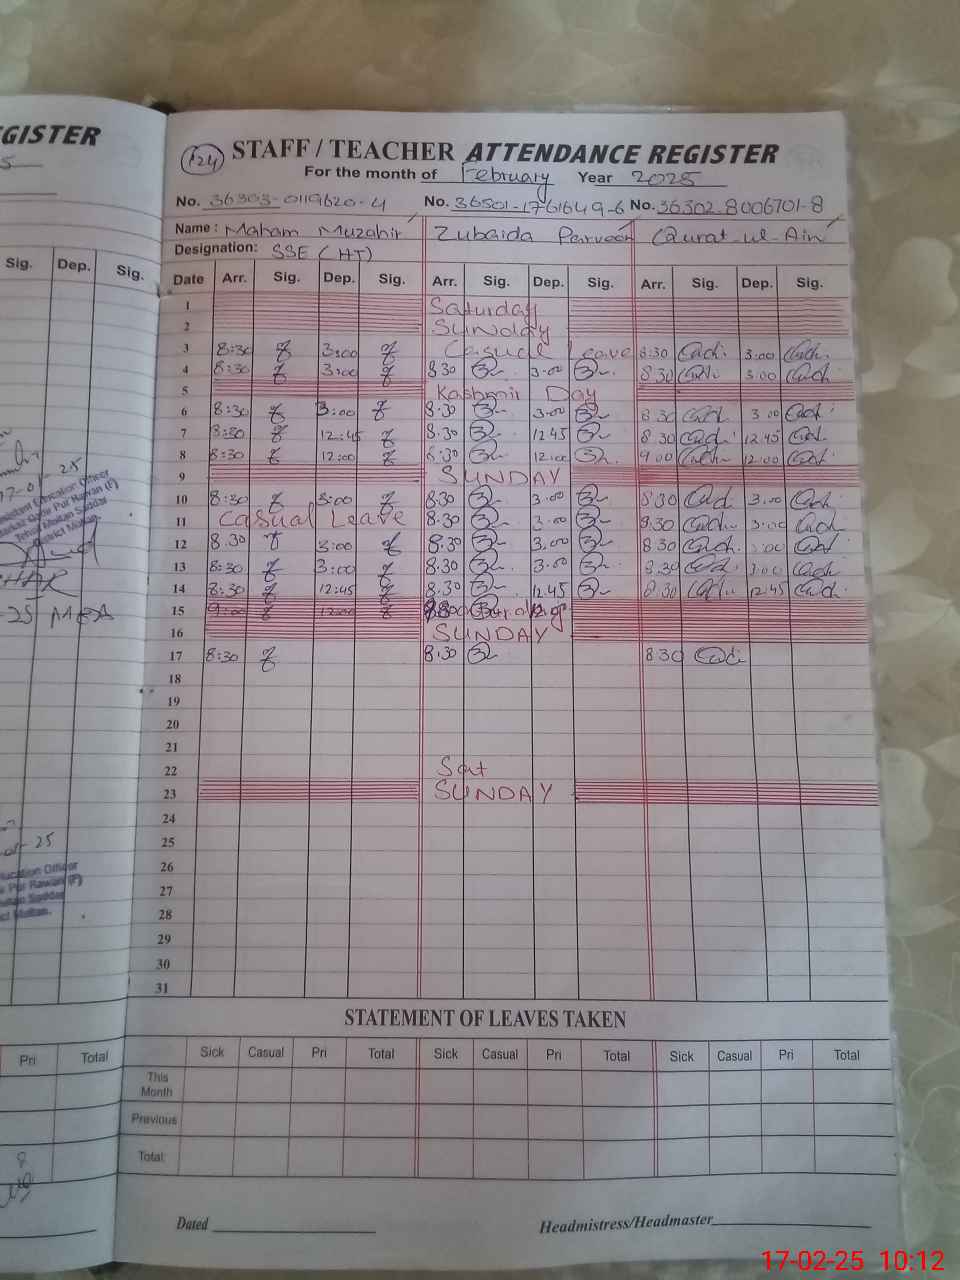 EGISTER
Sig. Dep. Sig.
25
District Multan
-25 MEA
-25
Education Officer
Pri Total
8
124 STAFF / TEACHER ATTENDANCE REGISTER
For the month of February Year 2025
No. 36303-0119620-4 No. 36501-1761649-6 No. 36302-8006701-8
Name : Maham Muzahir Zubaida Parveen Qurat-ul-Ain
Designation: SSE (HT)
Date Arr. Sig. Dep. Sig. Arr. Sig. Dep. Sig. Arr. Sig. Dep. Sig.
1 Saturday
2 SUNday
3 8:30 3:00 Casual Leave 8:30 3:00
4 8:30 3:00 8.30 3.00 8.30 3.00
5 Kashmir Day
6 8:30 3:00 8.30 3.00 8.30 3.00
7 8:30 12:45 8.30 12.45 8.30 12.45
8 8:30 12:00 8.30 12.00 9.00 12.00
9 SUNDAY
10 8:30 3:00 8.30 3.00 8.30 3.00
11 Casual Leave 8.30 3.00 8.30 3:00
12 8.30 3:00 8.30 3.00 8.30 3:00
13 8:30 3:00 8.30 3.00 8.30 3.00
14 8:30 12:45 8.30 12.45 8.30 12.45
15 9:00 12:00
16 SUNDAY
17 8:30 8.30 8.30
18
19
20
21
22 Sat
23 SUNDAY
24
25
26
27
28
29
30
31
STATEMENT OF LEAVES TAKEN
Sick Casual Pri Total Sick Casual Pri Total Sick Casual Pri Total
This Month
Previous
Total
Dated
Headmistress/Headmaster
17-02-25 10:12